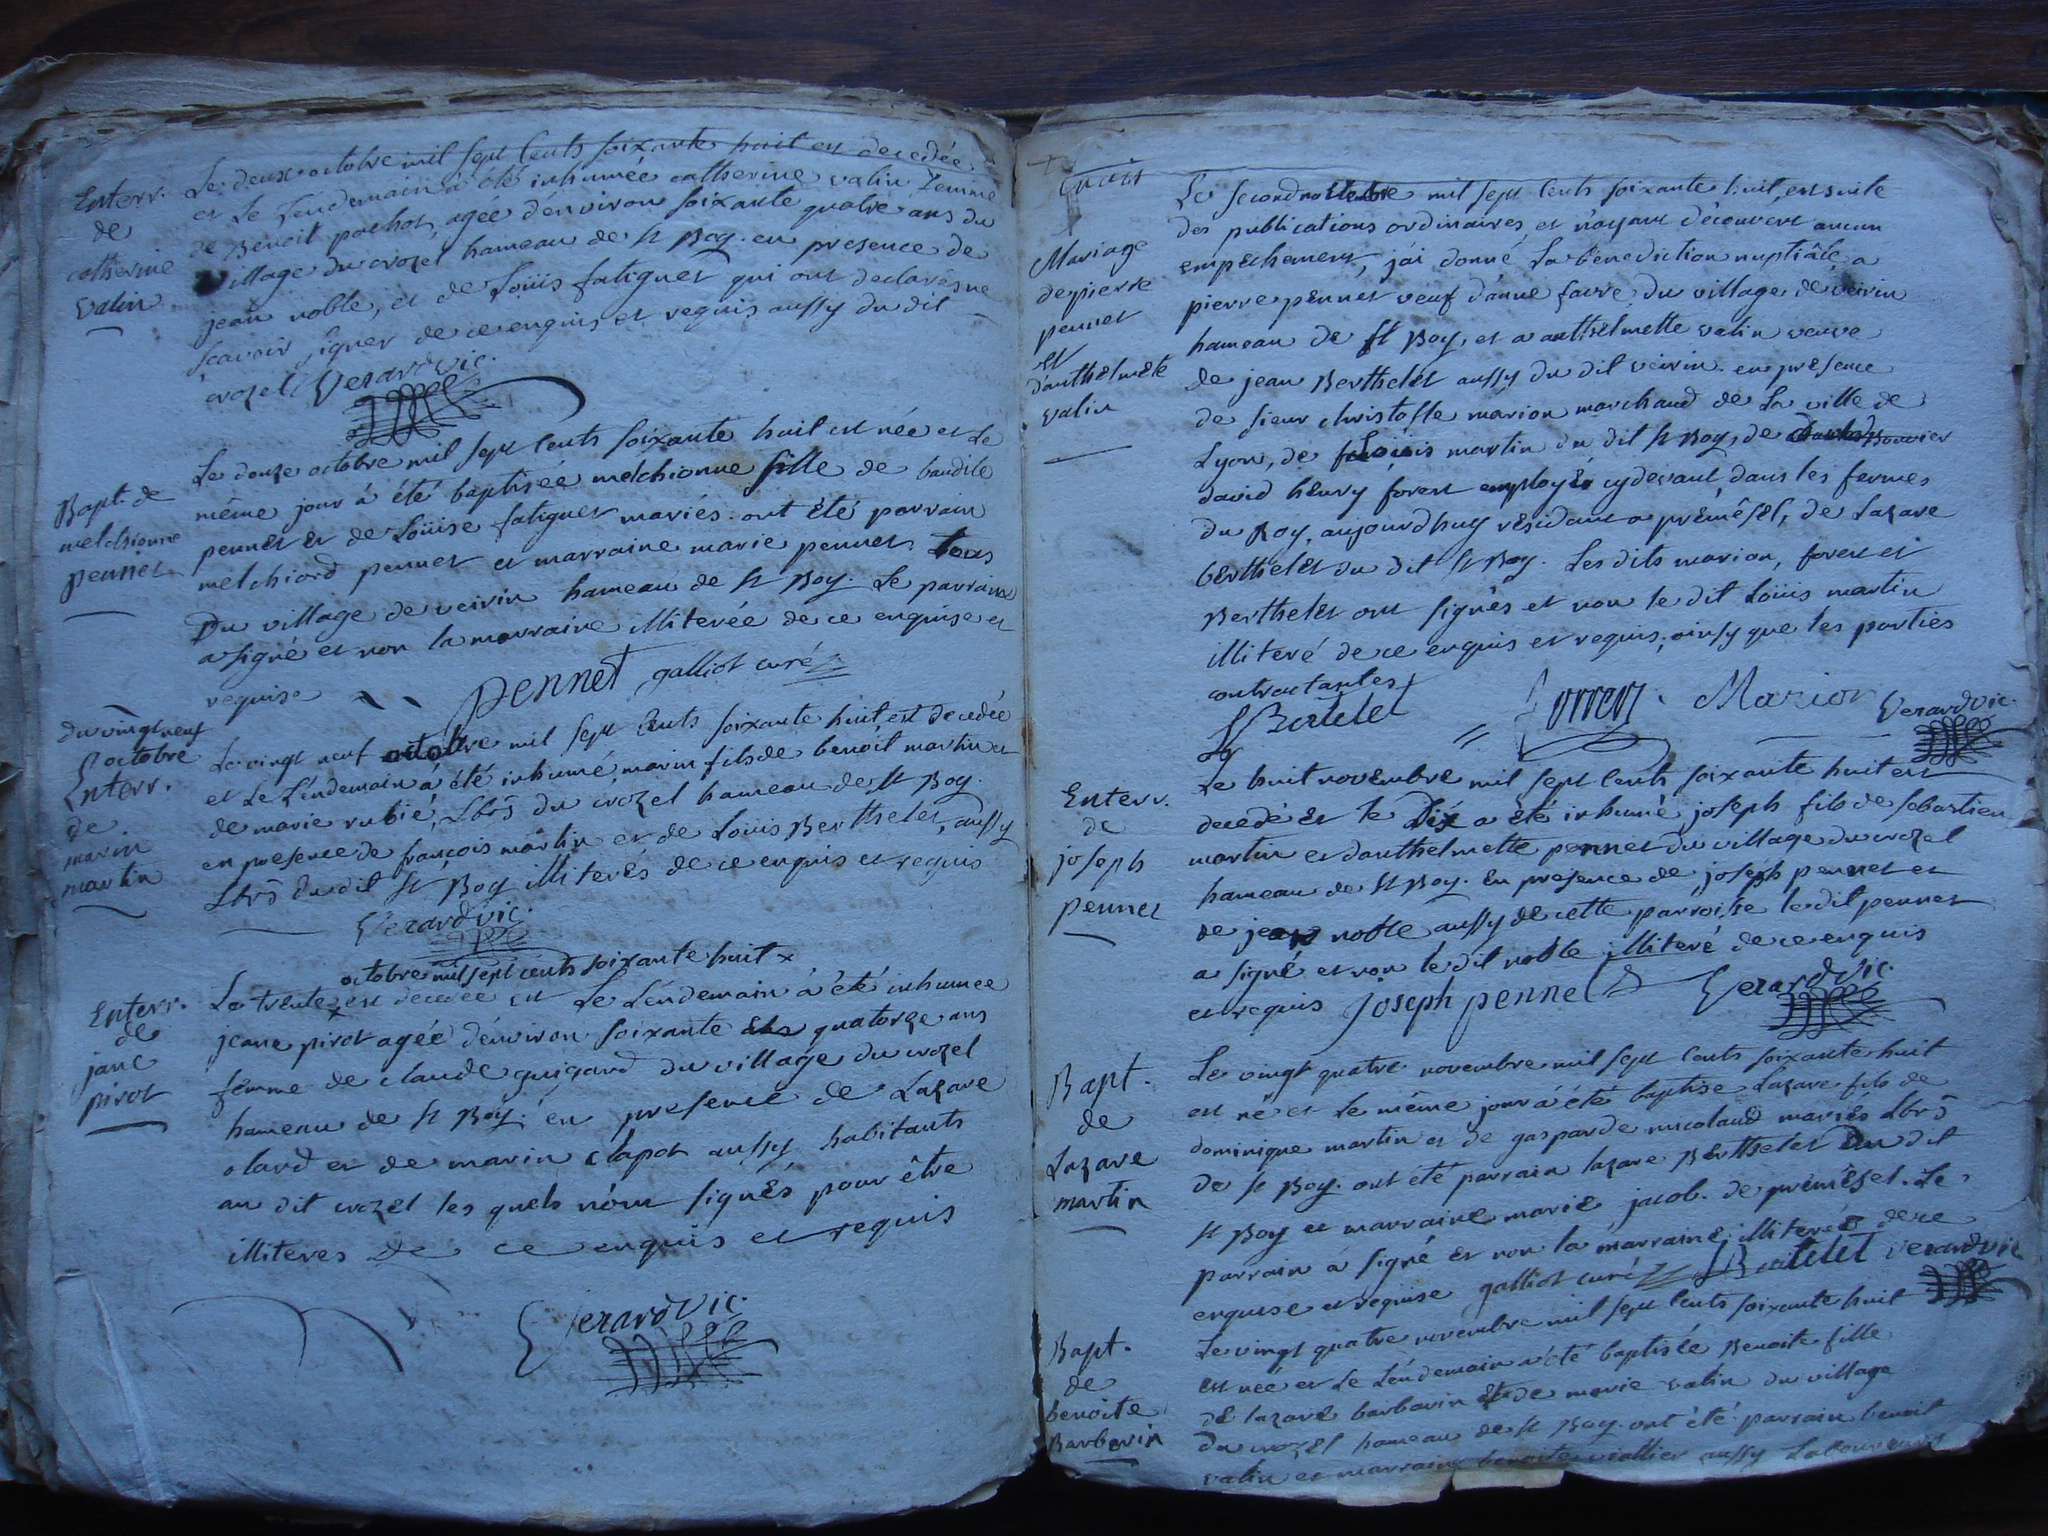 Enterr.
de
catherine
valin
Le deux octobre mil sept cents soixante huit est decedée
et le lendemain à été inhumée catherine valin femme
de Benoit pochot, agée d'environ soixante quatre ans du
village du crozel hameau de st Boy. en presence de
jean noble, et de Loüis fatiguet qui ont declarés ne
scavoir signer de ce enquis et requis aussy du dit
crozel Verard vic.
Bapt. de
melchionne
pennet
Le douze octobre mil sept cents soixante huit est née et le
même jour à été baptisée melchionne fille de baudile
pennet et de Loüise fatiguet mariés. ont été parrain
melchiord pennet et marraine marie pennet tous
Du village de veirin hameau de st Boy. Le parrain
a signé et non la marraine illiterée de ce enquise et
requise
pennet galliot curé
du vingt neuf
octobre
Enterr.
de
marin
martin
Le vingt neuf octobre mil sept cents soixante huit est decedée
et le lendemain à été inhumé marin fils de benoit martin et
de marie rubié, Lbrs du crozel hameau de st Boy.
en presence de françois martin et de Louis Berthelet, aussy
Lbrs du dit st Boy illiterés de ce enquis et requis
Verard vic.
octobre mil sept cents soixante huit x
Enterr.
de
jane
pirot
Le trente x est decedée et le lendemain à été inhumée
jeane pirot agée d'environ soixante et quatorze ans
femme de claude guigard du village du crozel
hameau de st Boy. en presence de Lazare
olard et de marin clapot aussy habitants
au dit crozel les quels n'ont signés pour être
illiteres de ce enquis et requis
Verard vic.
Mariage
de pierre
pennet
et
d'anthelmete
valin
Le second novembre mil sept cents soixante huit, ensuite
des publications ordinaires et n'ayant découvert aucun
empechement, j'ai donné la bénédiction nuptiâle, a
pierre pennet veuf d'anne favre du village de veirin
hameau de st Boy, et a anthelmette valin veuve
de jean Berthelet aussy du dit veirin. en presence
de sieur christofle marion marchand de la ville de
Lyon, de Loüis martin du dit st Boy, de
david henry forest employé cy devant dans les fermes
du Roy, aujourdhuy résidant a prémésel, de Lazare
berthelet du dit st Boy. Les dits marion, forest et
Berthelet ont signés et non le dit Loüis martin
illiteré de ce enquis et requis, ainsy que les parties
contractantes
L Bertelet forrest Marion Verard vic.
Enterr.
de
joseph
pennet
Le huit novembre mil sept cents soixante huit est
decedé et le dix a été inhumé joseph fils de sebastien
martin et d'anthelmette pennet du village du crozel
hameau de st Boy. En presence de joseph pennet et
de jean noble aussy de cette parroisse le dit pennet
a signé et non le dit noble illiteré de ce enquis
et requis joseph pennet Verard vic.
Bapt.
de
Lazare
martin
Le vingt quatre novembre mil sept cents soixante huit
est né et le même jour à été baptisé Lazare fils de
dominique martin et de gasparde micoland mariés Lbrs
de st Boy. ont été parrain lazare Berthelet du dit
st Boy et marraine marie jacob. de prémésel. Le
parrain à signé et non la marraine illiterée de ce
enquise et requise galliot curé L Bertelet Verard vic
Bapt.
de
benoite
Barbarin
Le vingt quatre novembre mil sept cents soixante huit
est née et le lendemain a été baptisée Benoite fille
de lazare barbarin et de marie valin du village
du crozel hameau de st Boy. ont été parrain benoit
valin et marraine benoite viallier aussy Laboureurs